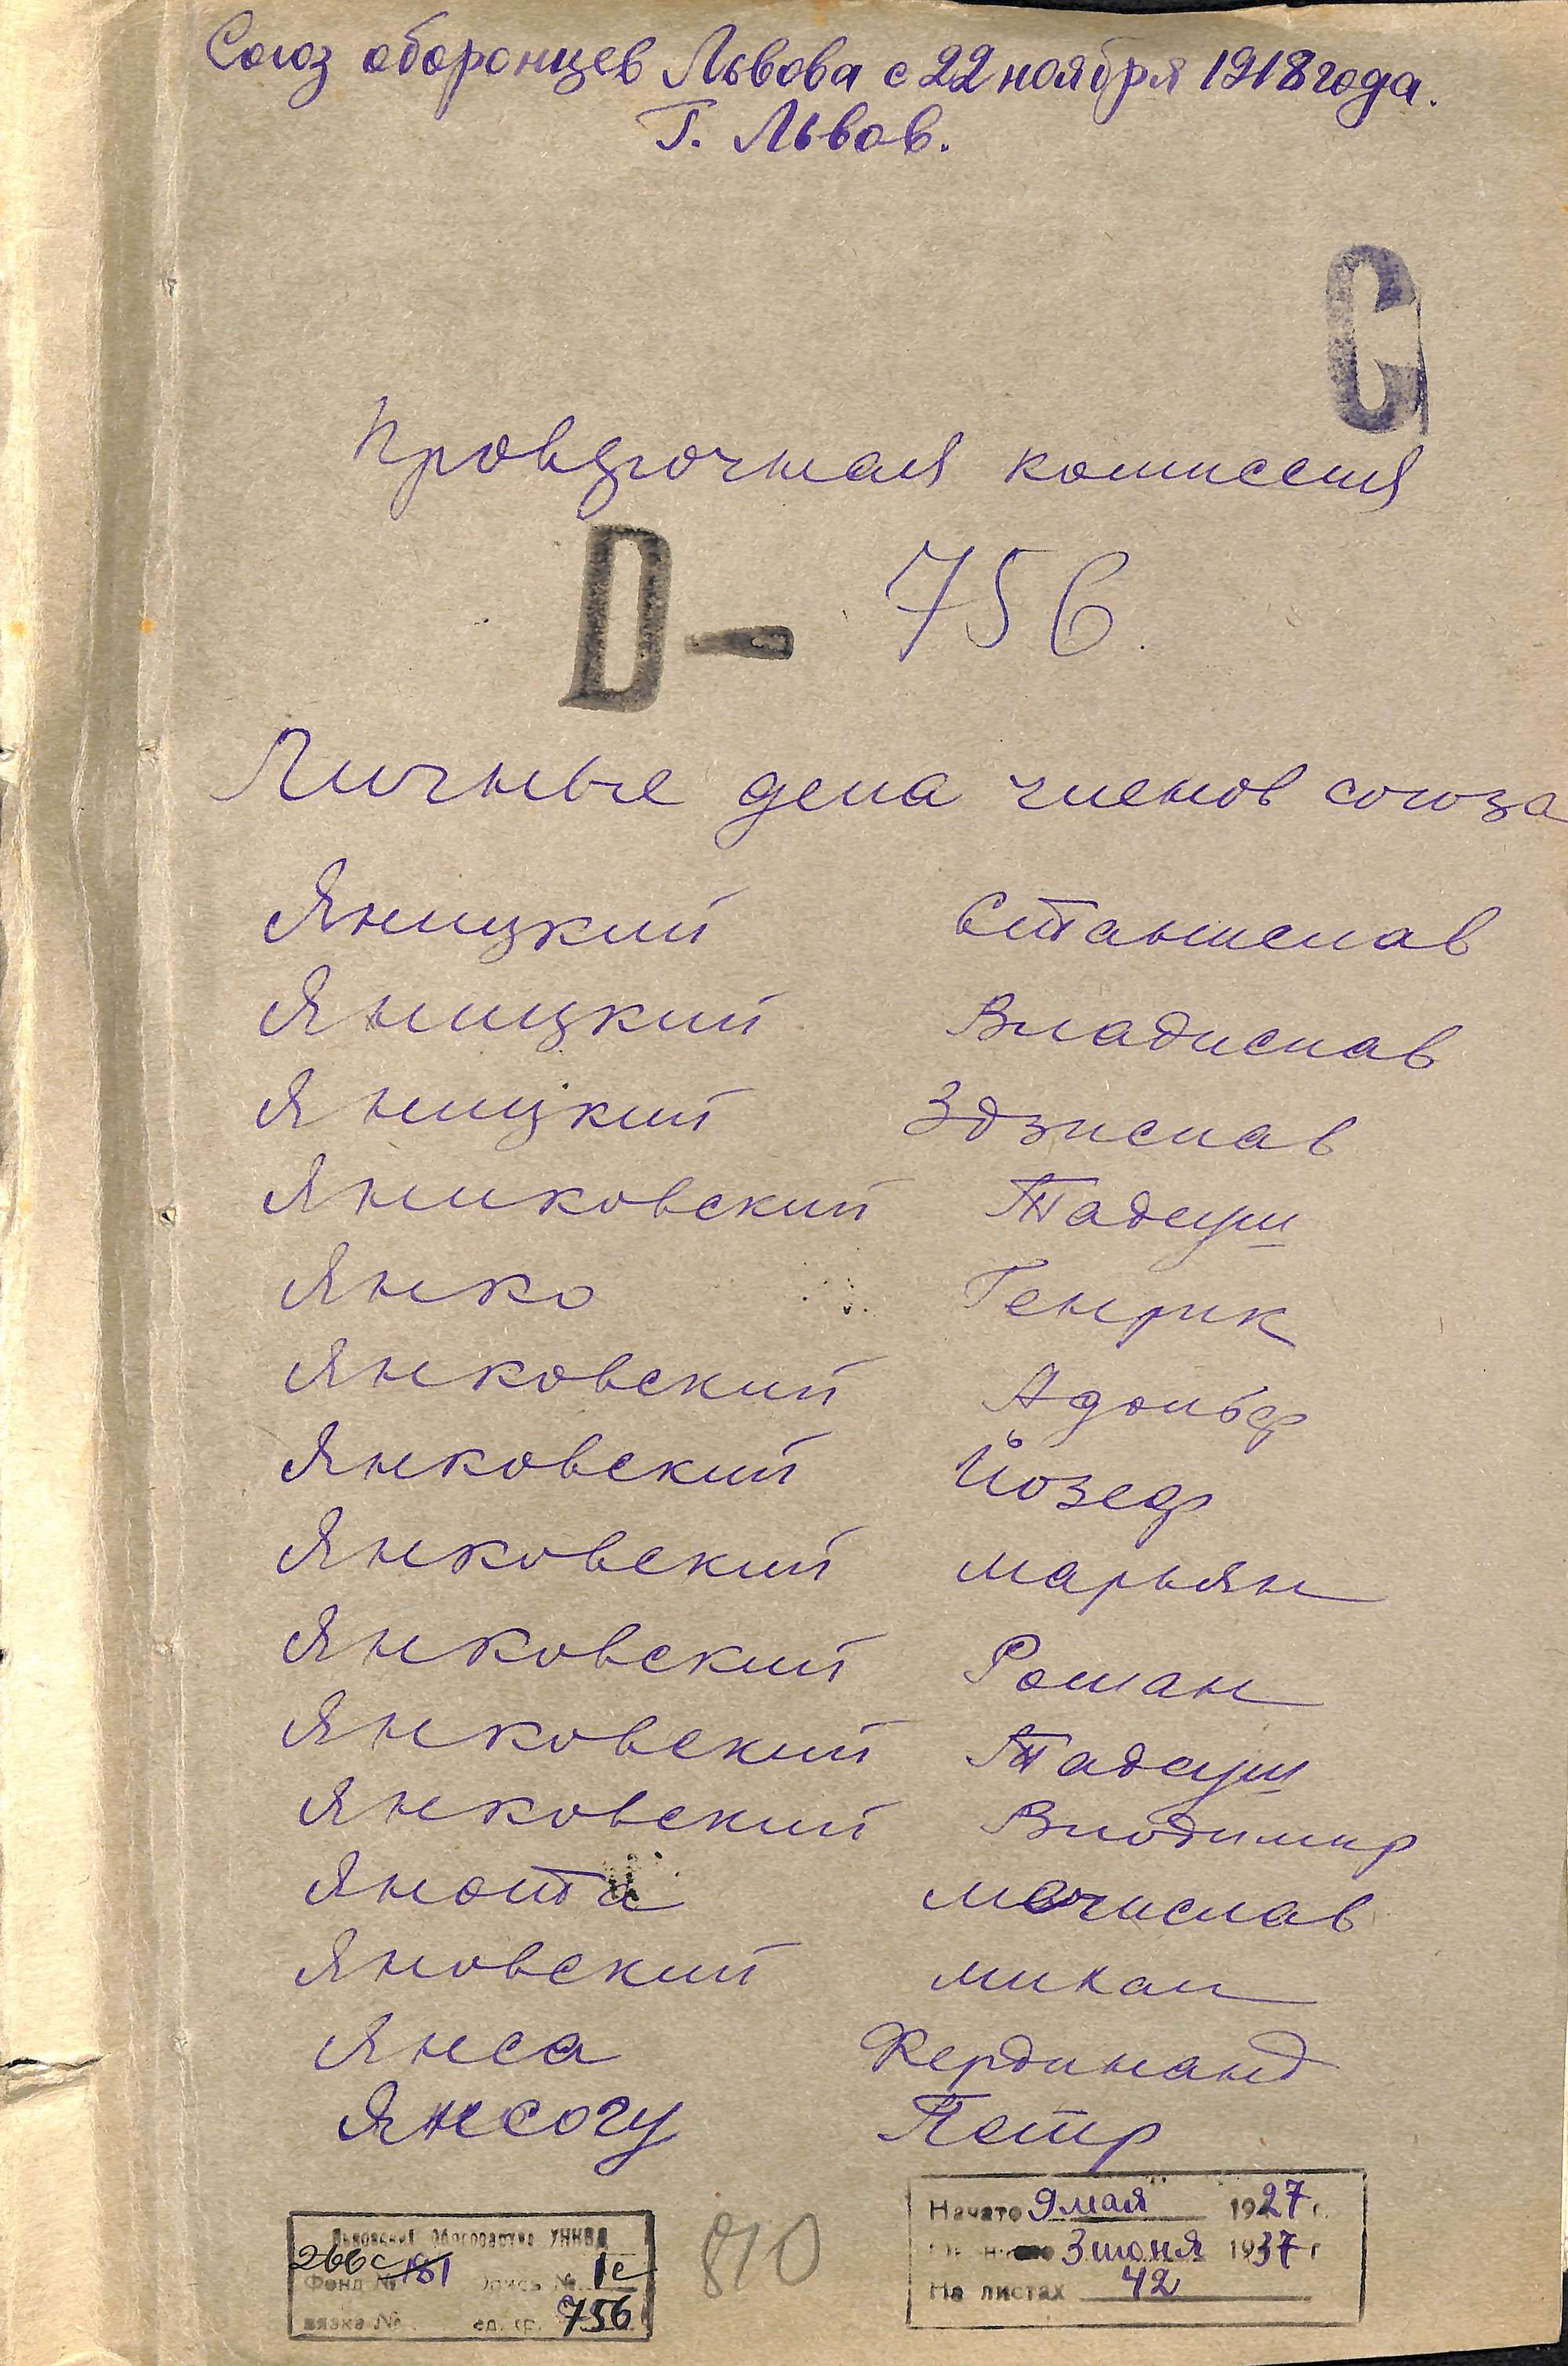 Союз оборонцев Львова с 22 ноября 1918 года.
Г. Львов.
С
Проверочная комиссия
D - 756.
Личные дела членов союза
Яницкий Станислав
Яницкий Владислав
Яницкий Здзислав
Яниковский Тадеуш
Янко Генрик
Янковский Адольф
Янковский Йозеф
Янковский Марьян
Янковский Роман
Янковский Тадеуш
Янковский Влодимир
Янота Мечислав
Яновский Михал
Янса Фердинанд
Янсогу Петр
Начато 9 мая 1927 г.
3 июня 1937 г
На листах 42
Львовский Облгосархив УНКВД
266с 181 Фонд № Опись № 1с
вязка № ед. хр. 756
810